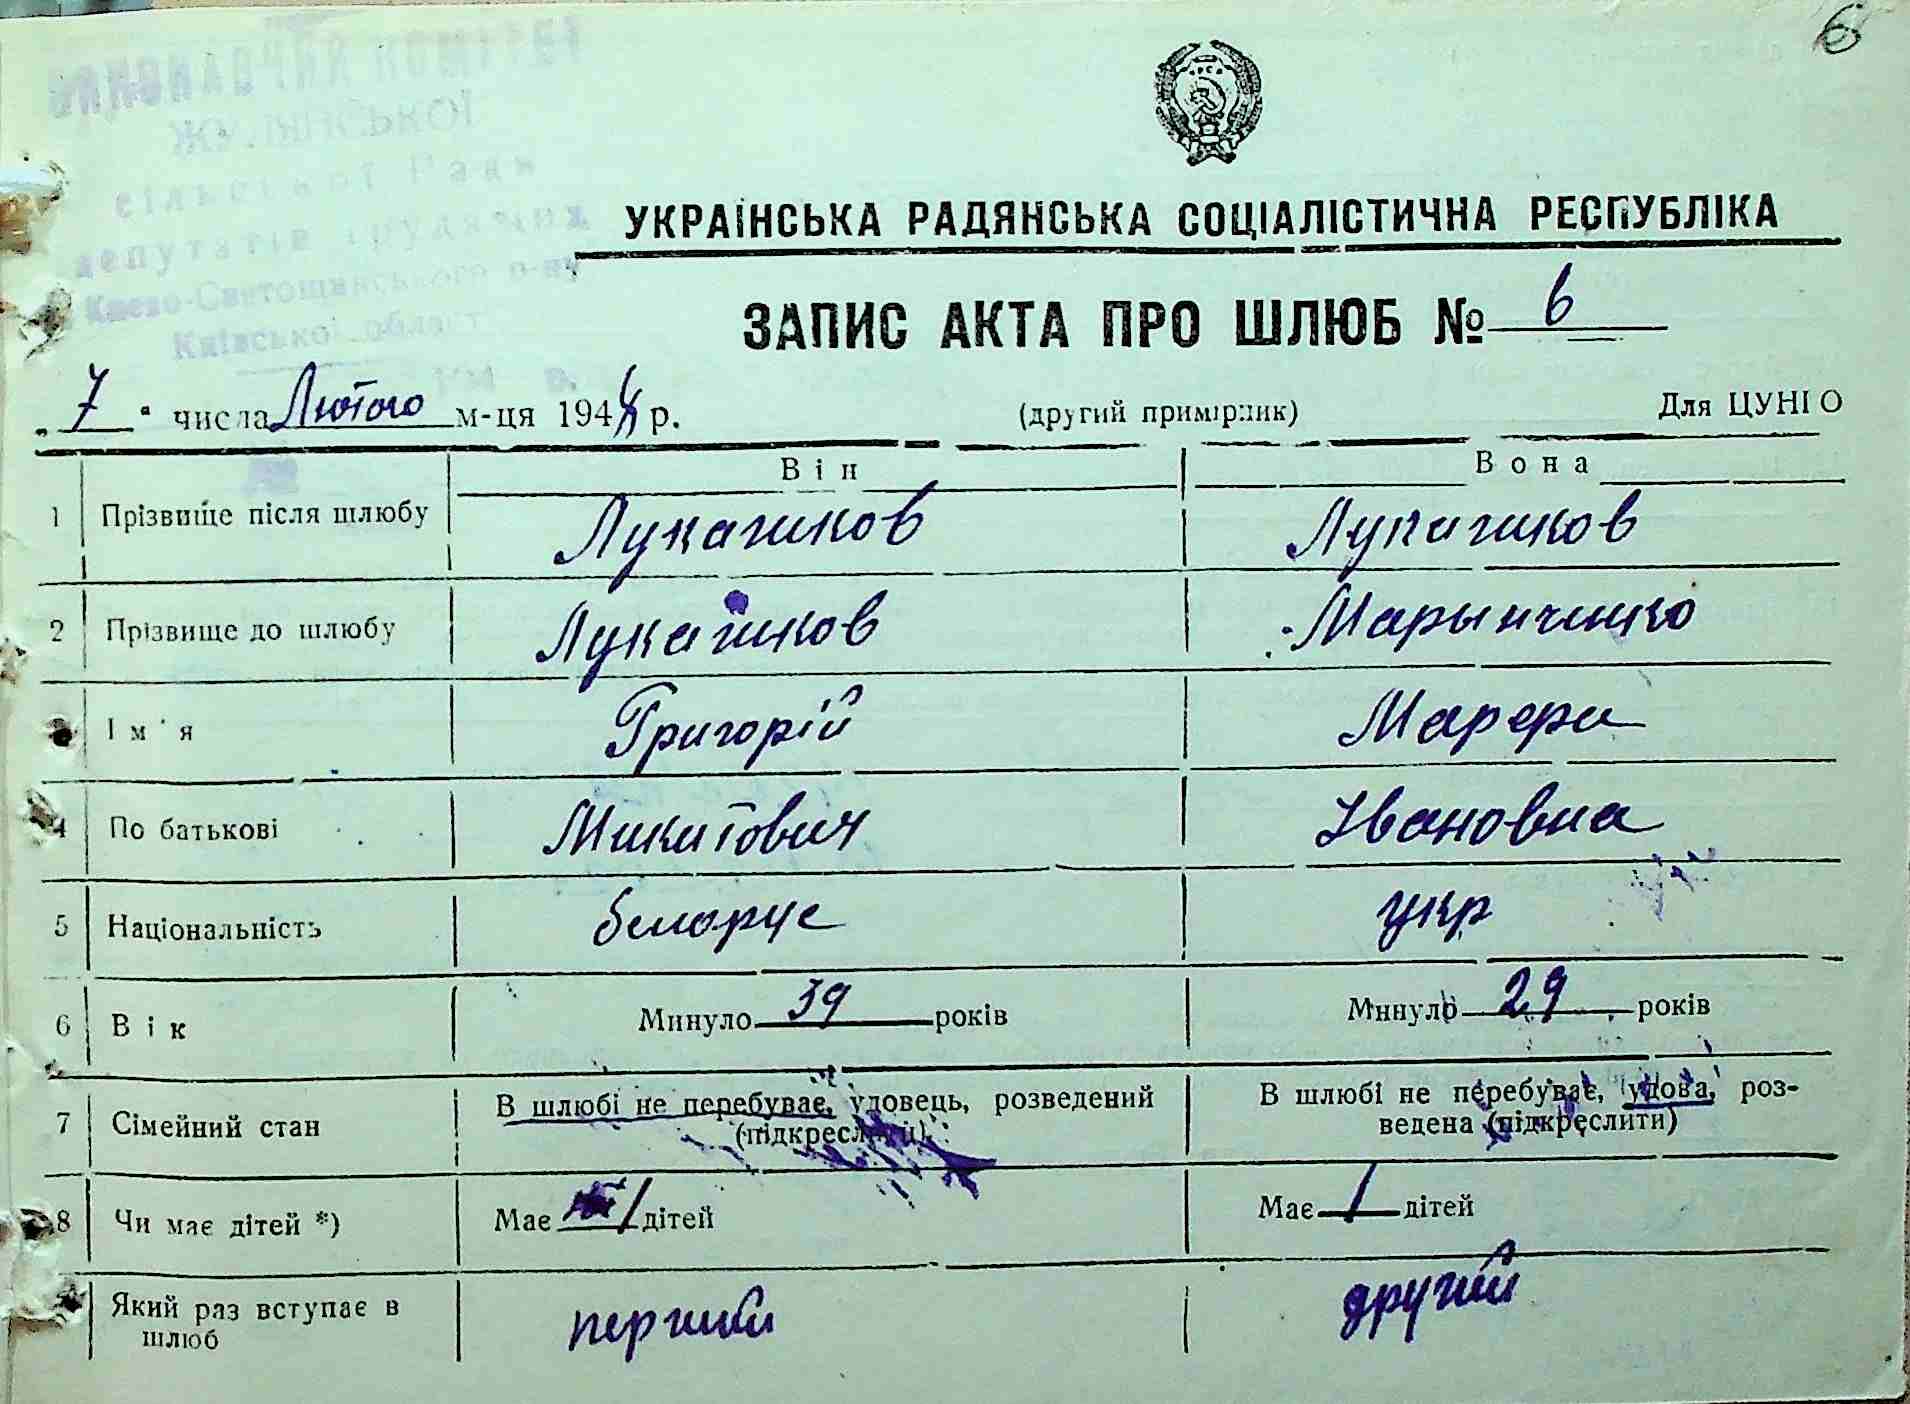 6
ВИКОНАВЧИЙ КОМІТЕТ
ЖУЛЯНСЬКОЇ
сільської Ради
депутатів трудящих
Києво-Святошинського р-ну
Київської області
УКРАЇНСЬКА РАДЯНСЬКА СОЦІАЛІСТИЧНА РЕСПУБЛІКА
ЗАПИС АКТА ПРО ШЛЮБ № 6
„ 7 " числа Лютого м-ця 194 р.
(другий примірник)
Для ЦУНГО
Він Вона
1 Прізвище після шлюбу Лукашков Лукашков
2 Прізвище до шлюбу Лукашков Марынченко
3 Ім'я Григорій
4 По батькові Микитович Івановна
5 Національність белорус укр
6 Вік Минуло 39 років Минуло 29 років
7 Сімейний стан В шлюбі не перебуває, удовець, розведений (підкреслити) В шлюбі не перебуває, удова, роз-
ведена (підкреслити)
8 Чи має дітей *) Має 1 дітей Має 1 дітей
Який раз вступає в
шлюб перший другий